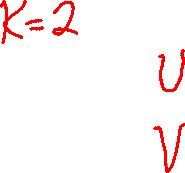 K=2
U
V